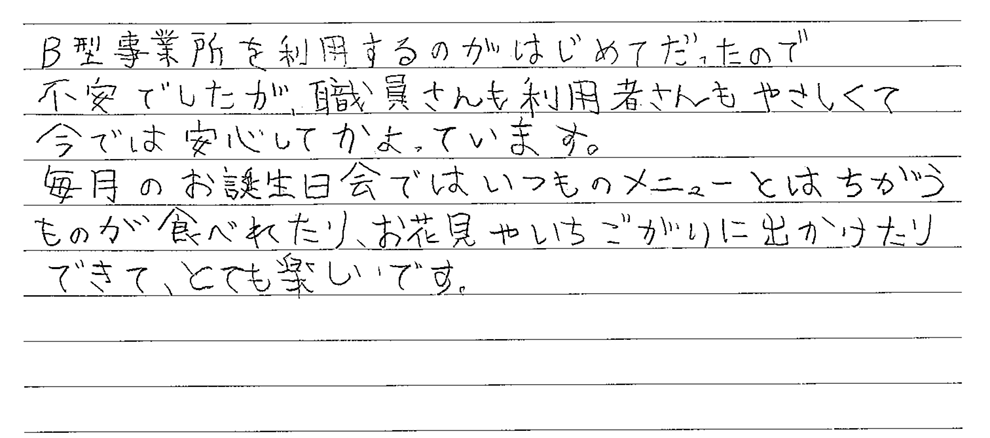 B型事業所を利用するのがはじめてだったので
不安でしたが、職員さんも利用者さんもやさしくて
今では安心してかよっています。
毎月のお誕生日会ではいつものメニューとはちがう
ものが食べれたり、お花見やいちごがりに出かけたり
できて、とても楽しいです。